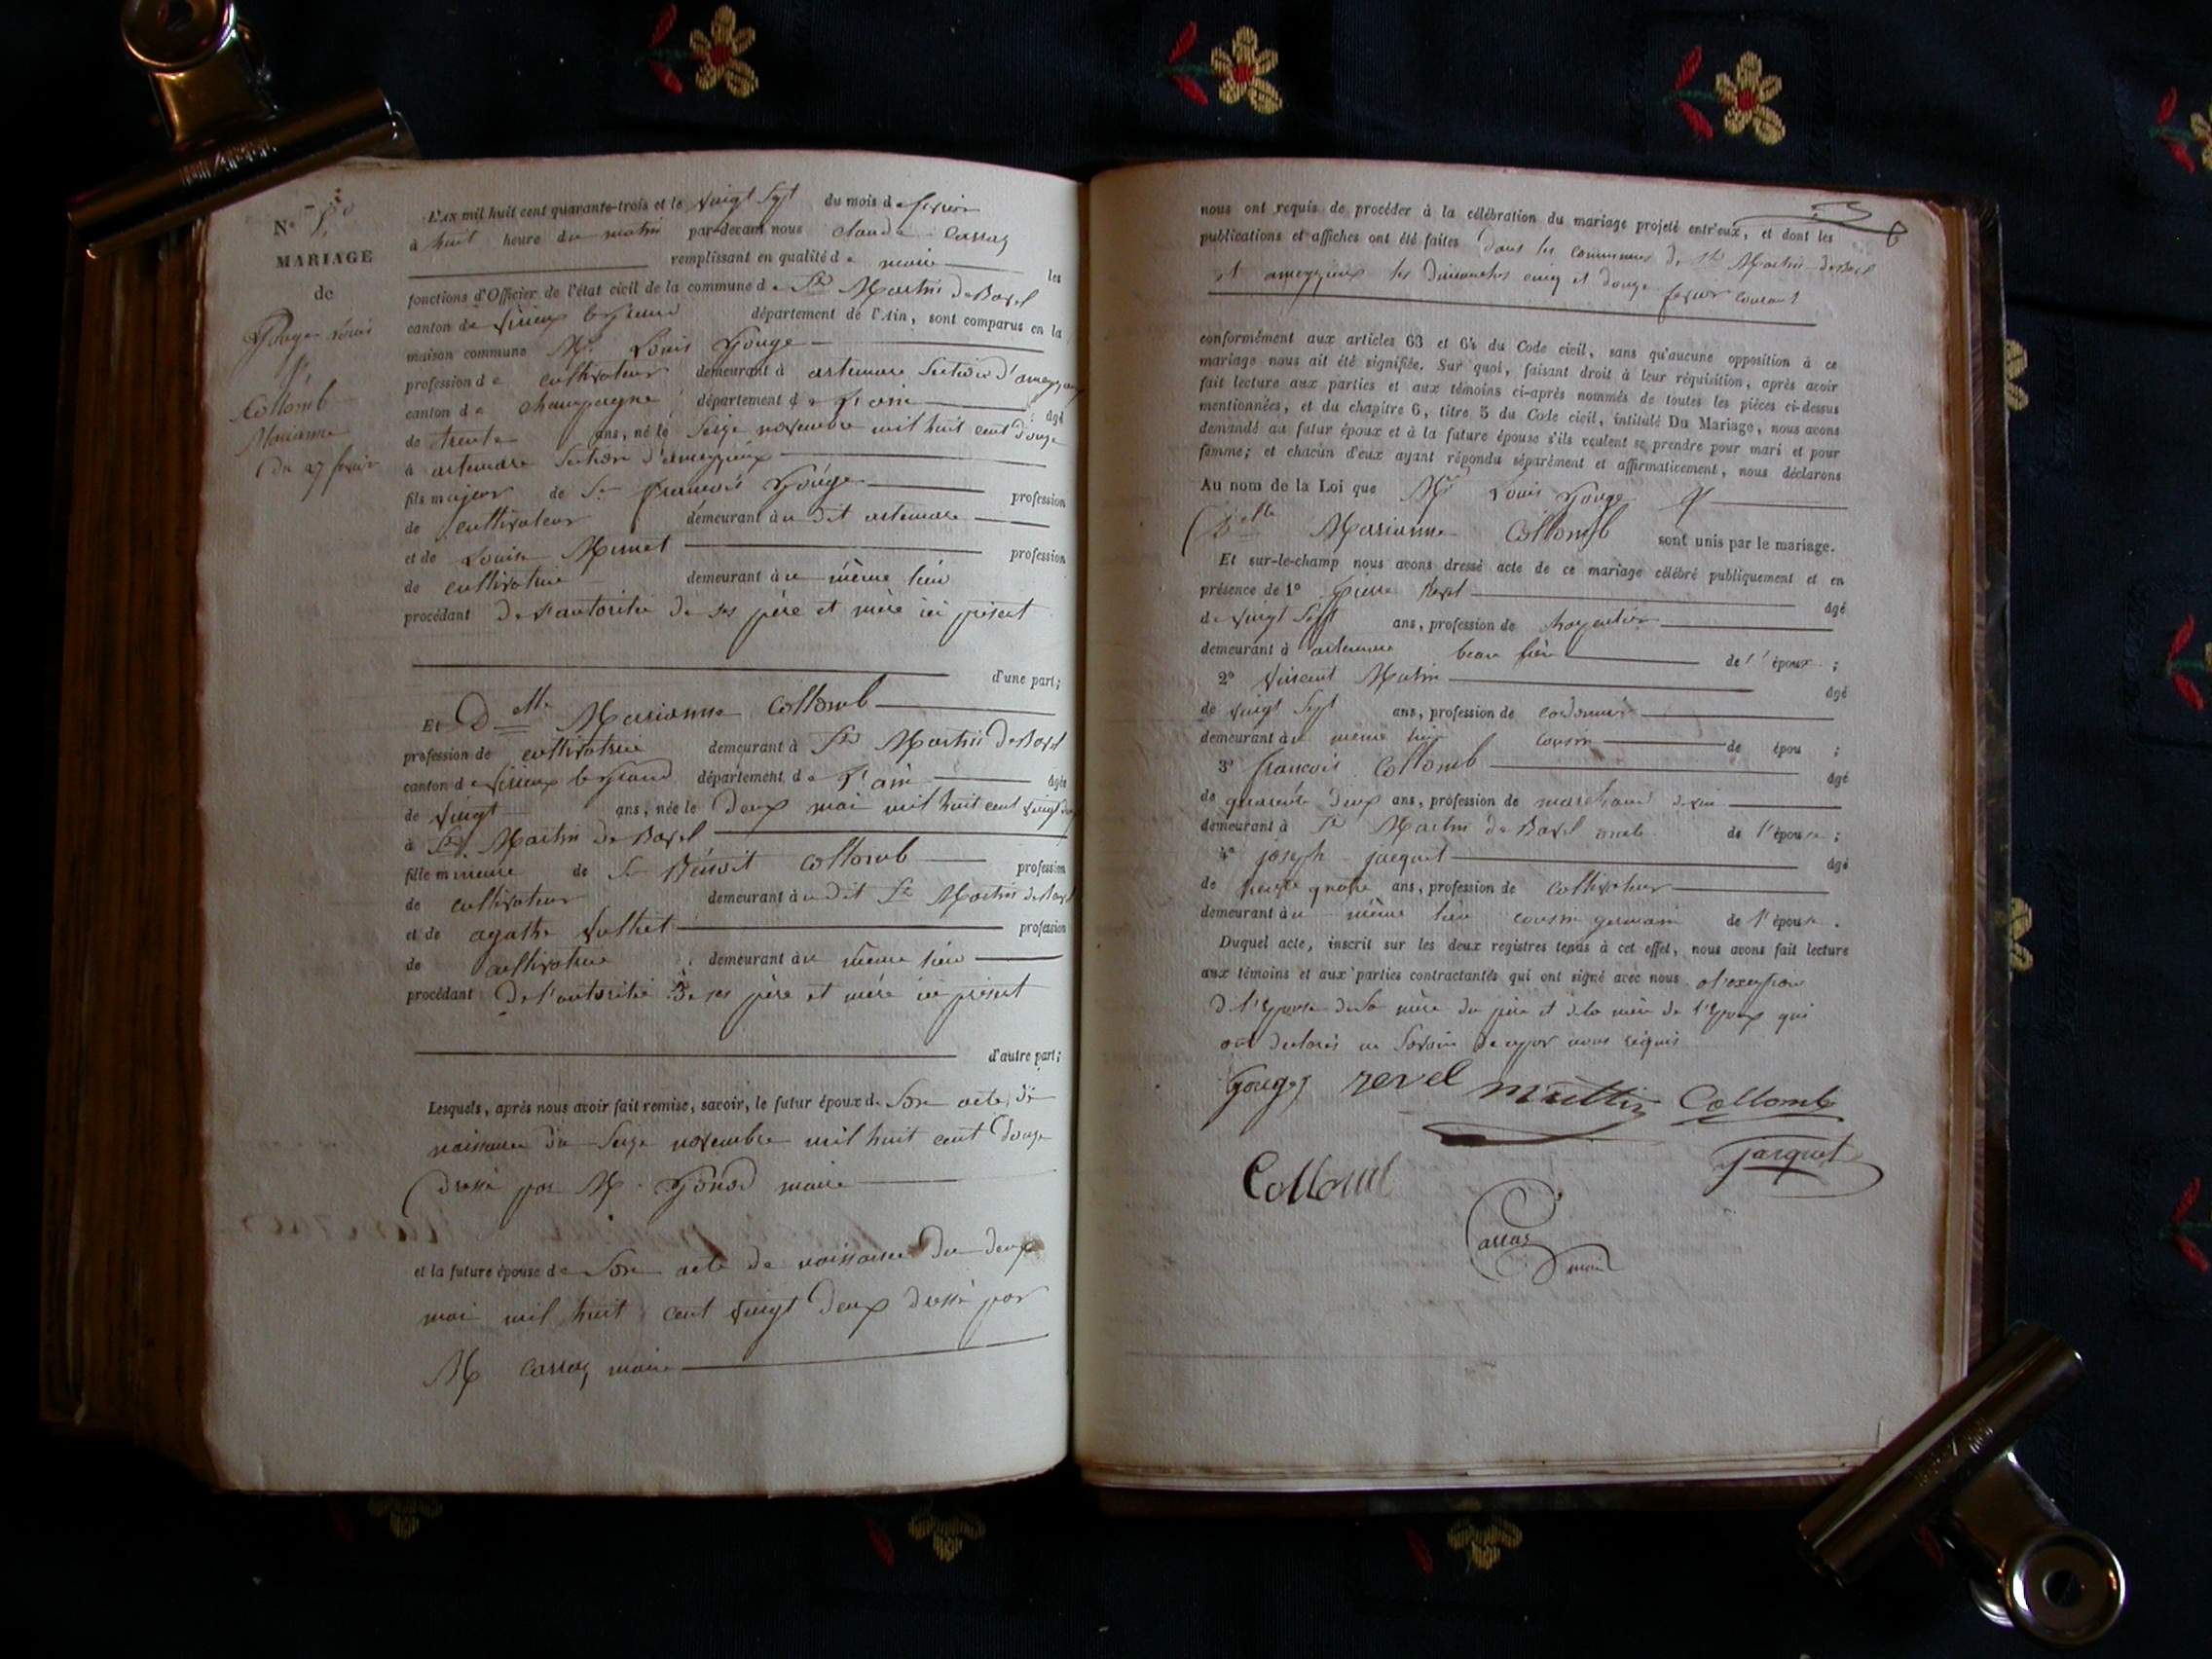 N.º 5.
MARIAGE
de
Gouge Louis
&
Collomb
Marianne
du 27 fevrier
L'an mil huit cent quarante-trois et le vingt sept du mois de fevrier
à huit heure du matin par-devant nous Claude Carraz
remplissant en qualité de maire les
fonctions d'Officier de l'état civil de la commune de St Martin de Bavel
canton de Virieux le Grand département de l'Ain, sont comparus en la
maison commune Mr Louis Gouge
profession de cultivateur demeurant à artemare Section d'ameyzieux
canton de Champagne département de l'ain âgé
de trente ans, né le Seize novembre mil huit cent douze
à artemare Section d'ameyzieux
fils majeur de Sr francois Gouge profession
de cultivateur demeurant au dit artemare
et de Louise profession
de cultivatrice demeurant au même lieu
procédant de l'autorité de ses père et mère ici présent
d'une part;
Et Delle Marianne Collomb
profession de cultivatrice demeurant à St Martin de Bavel
canton de Virieux le Grand département de l'ain âgée
de vingt ans, née le deux mai mil huit cent vingt deux
à St Martin de Bavel
fille mineure de Sr Benoit Collomb profession
de cultivateur demeurant au dit St Martin de Bavel
et de agathe profession
de cultivatrice demeurant au même lieu
procédant de l'autorité de ses père et mère ici présent
d'autre part;
Lesquels, après nous avoir fait remise, savoir, le futur époux de Son acte de
naissance du Seize novembre mil huit cent douze
dressé par M. maire
et la future épouse de Son acte de naissance du deux
mai mil huit cent vingt deux dressé par
M Carraz maire
nous ont requis de procéder à la célébration du mariage projeté entr'eux, et dont les
publications et affiches ont été faites dans les communes de St Martin de Bavel
et ameyzieux les dimanches cinq et douze fevrier courant
conformément aux articles 63 et 64 du Code civil, sans qu'aucune opposition à ce
mariage nous ait été signifiée. Sur quoi, faisant droit à leur réquisition, après avoir
fait lecture aux parties et aux témoins ci-après nommés de toutes les pièces ci-dessus
mentionnées, et du chapitre 6, titre 5 du Code civil, intitulé Du Mariage, nous avons
demandé au futur époux et à la future épouse s'ils veulent se prendre pour mari et pour
femme; et chacun d'eux ayant répondu séparément et affirmativement, nous déclarons
Au nom de la Loi que Mr Louis Gouge &
Delle Marianne Collomb sont unis par le mariage.
Et sur-le-champ nous avons dressé acte de ce mariage célébré publiquement et en
présence de 1º Pierre Revel âgé
de vingt Sept ans, profession de
demeurant à artemare beau frère de l'époux ;
2º Vincent Martin âgé
de vingt Sept ans, profession de cordonnier
demeurant au même lieu cousin de épou ;
3º francois Collomb âgé
de quarante deux ans, profession de marchand de vin
demeurant à St Martin de Bavel oncle de l'épouse ;
4º joseph jacquet âgé
de trente quatre ans, profession de Cultivateur
demeurant au même lieu cousin germain de l'épouse .
Duquel acte, inscrit sur les deux registres tenus à cet effet, nous avons fait lecture
aux témoins et aux parties contractantés qui ont signé avec nous a l'exception
de l'Epouse de Sa mère du père et de la mère de l'Epoux qui
ont declarés ne Savoir de ce requis
Gouge revel Collomb
jacquet
Collomb
Carraz
maire